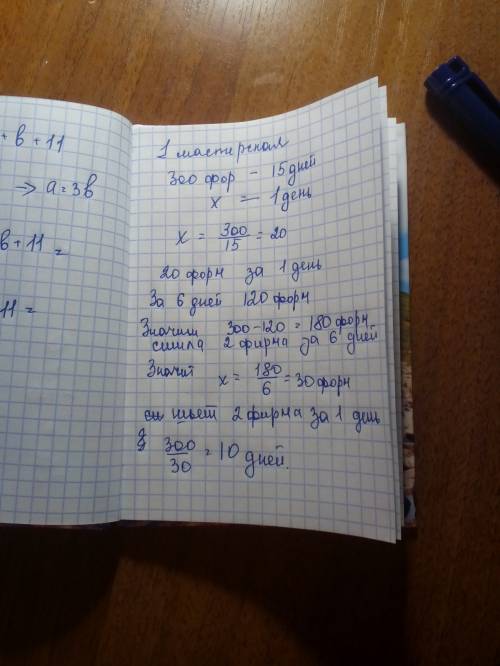 + b + 11
⇒ a = 3b
b + 11 =
11 =
1 мастерская
300 фор – 15 дней
x — 1 день
x = 300/15 = 20
20 форм за 1 день
За 6 дней 120 форм
Значит 300 – 120 = 180 форм
сшила 2 фирма за 6 дней
Значит x = 180/6 = 30 форм
шьет 2 фирма за 1 день
300/30 = 10 дней.